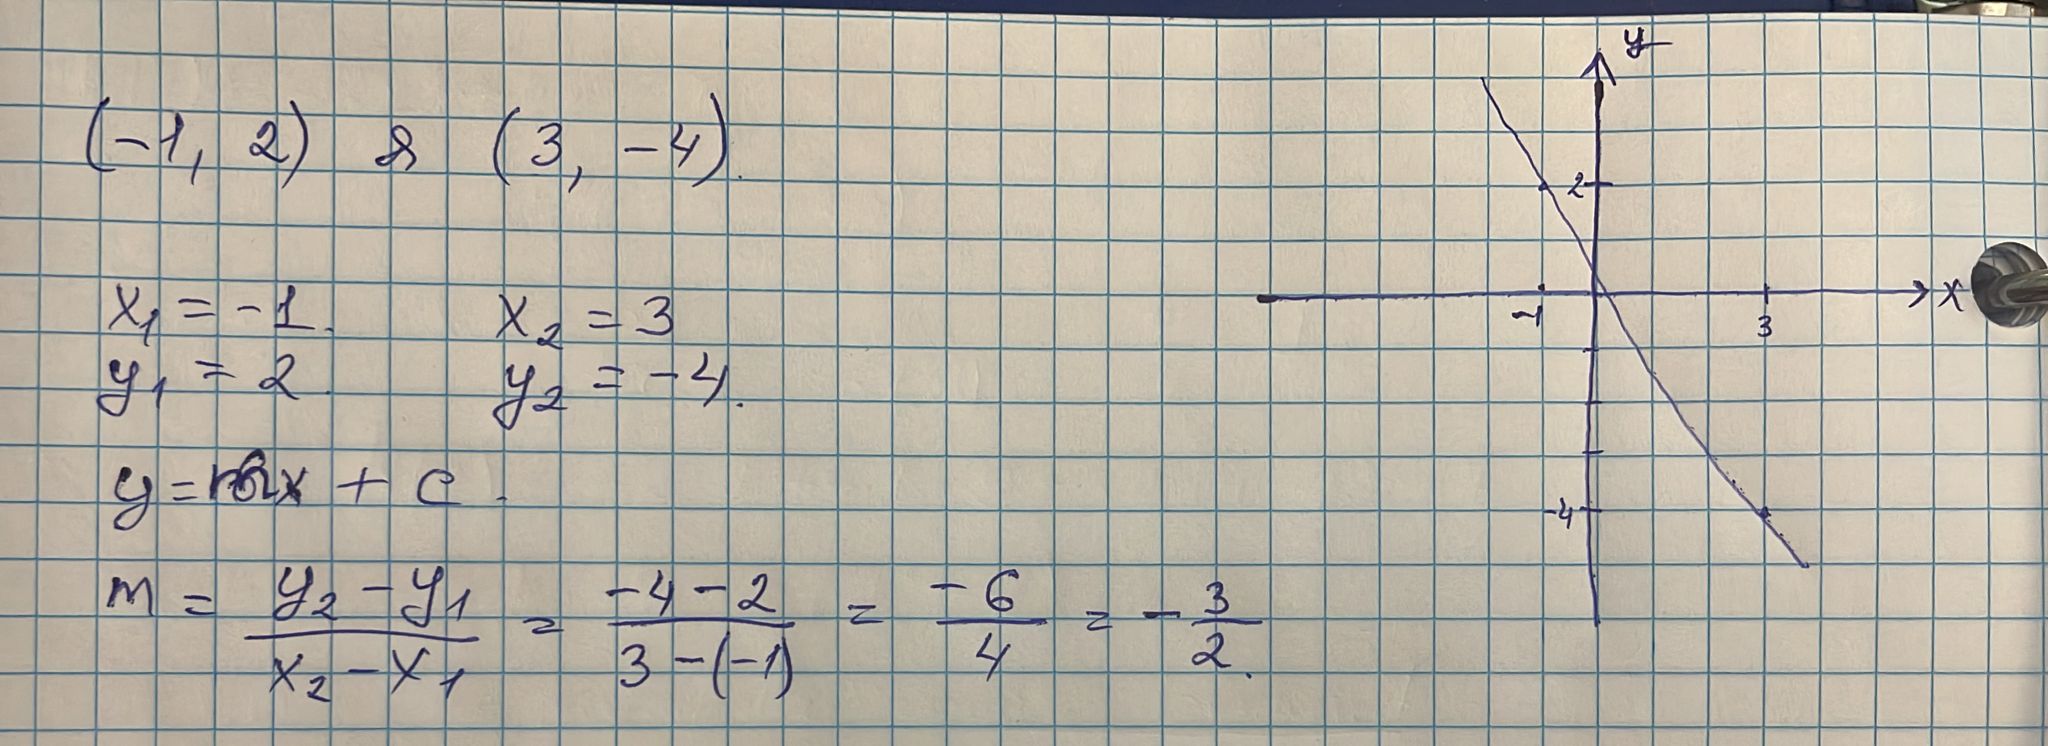 (-1, 2) & (3, -4).
x₁ = -1. x₂ = 3
y₁ = 2. y₂ = -4.
y = mx + c.
m = (y₂ - y₁)/(x₂ - x₁) = (-4 - 2)/(3 - (-1)) = -6/4 = -3/2.
y
2
-1 3 x
-4